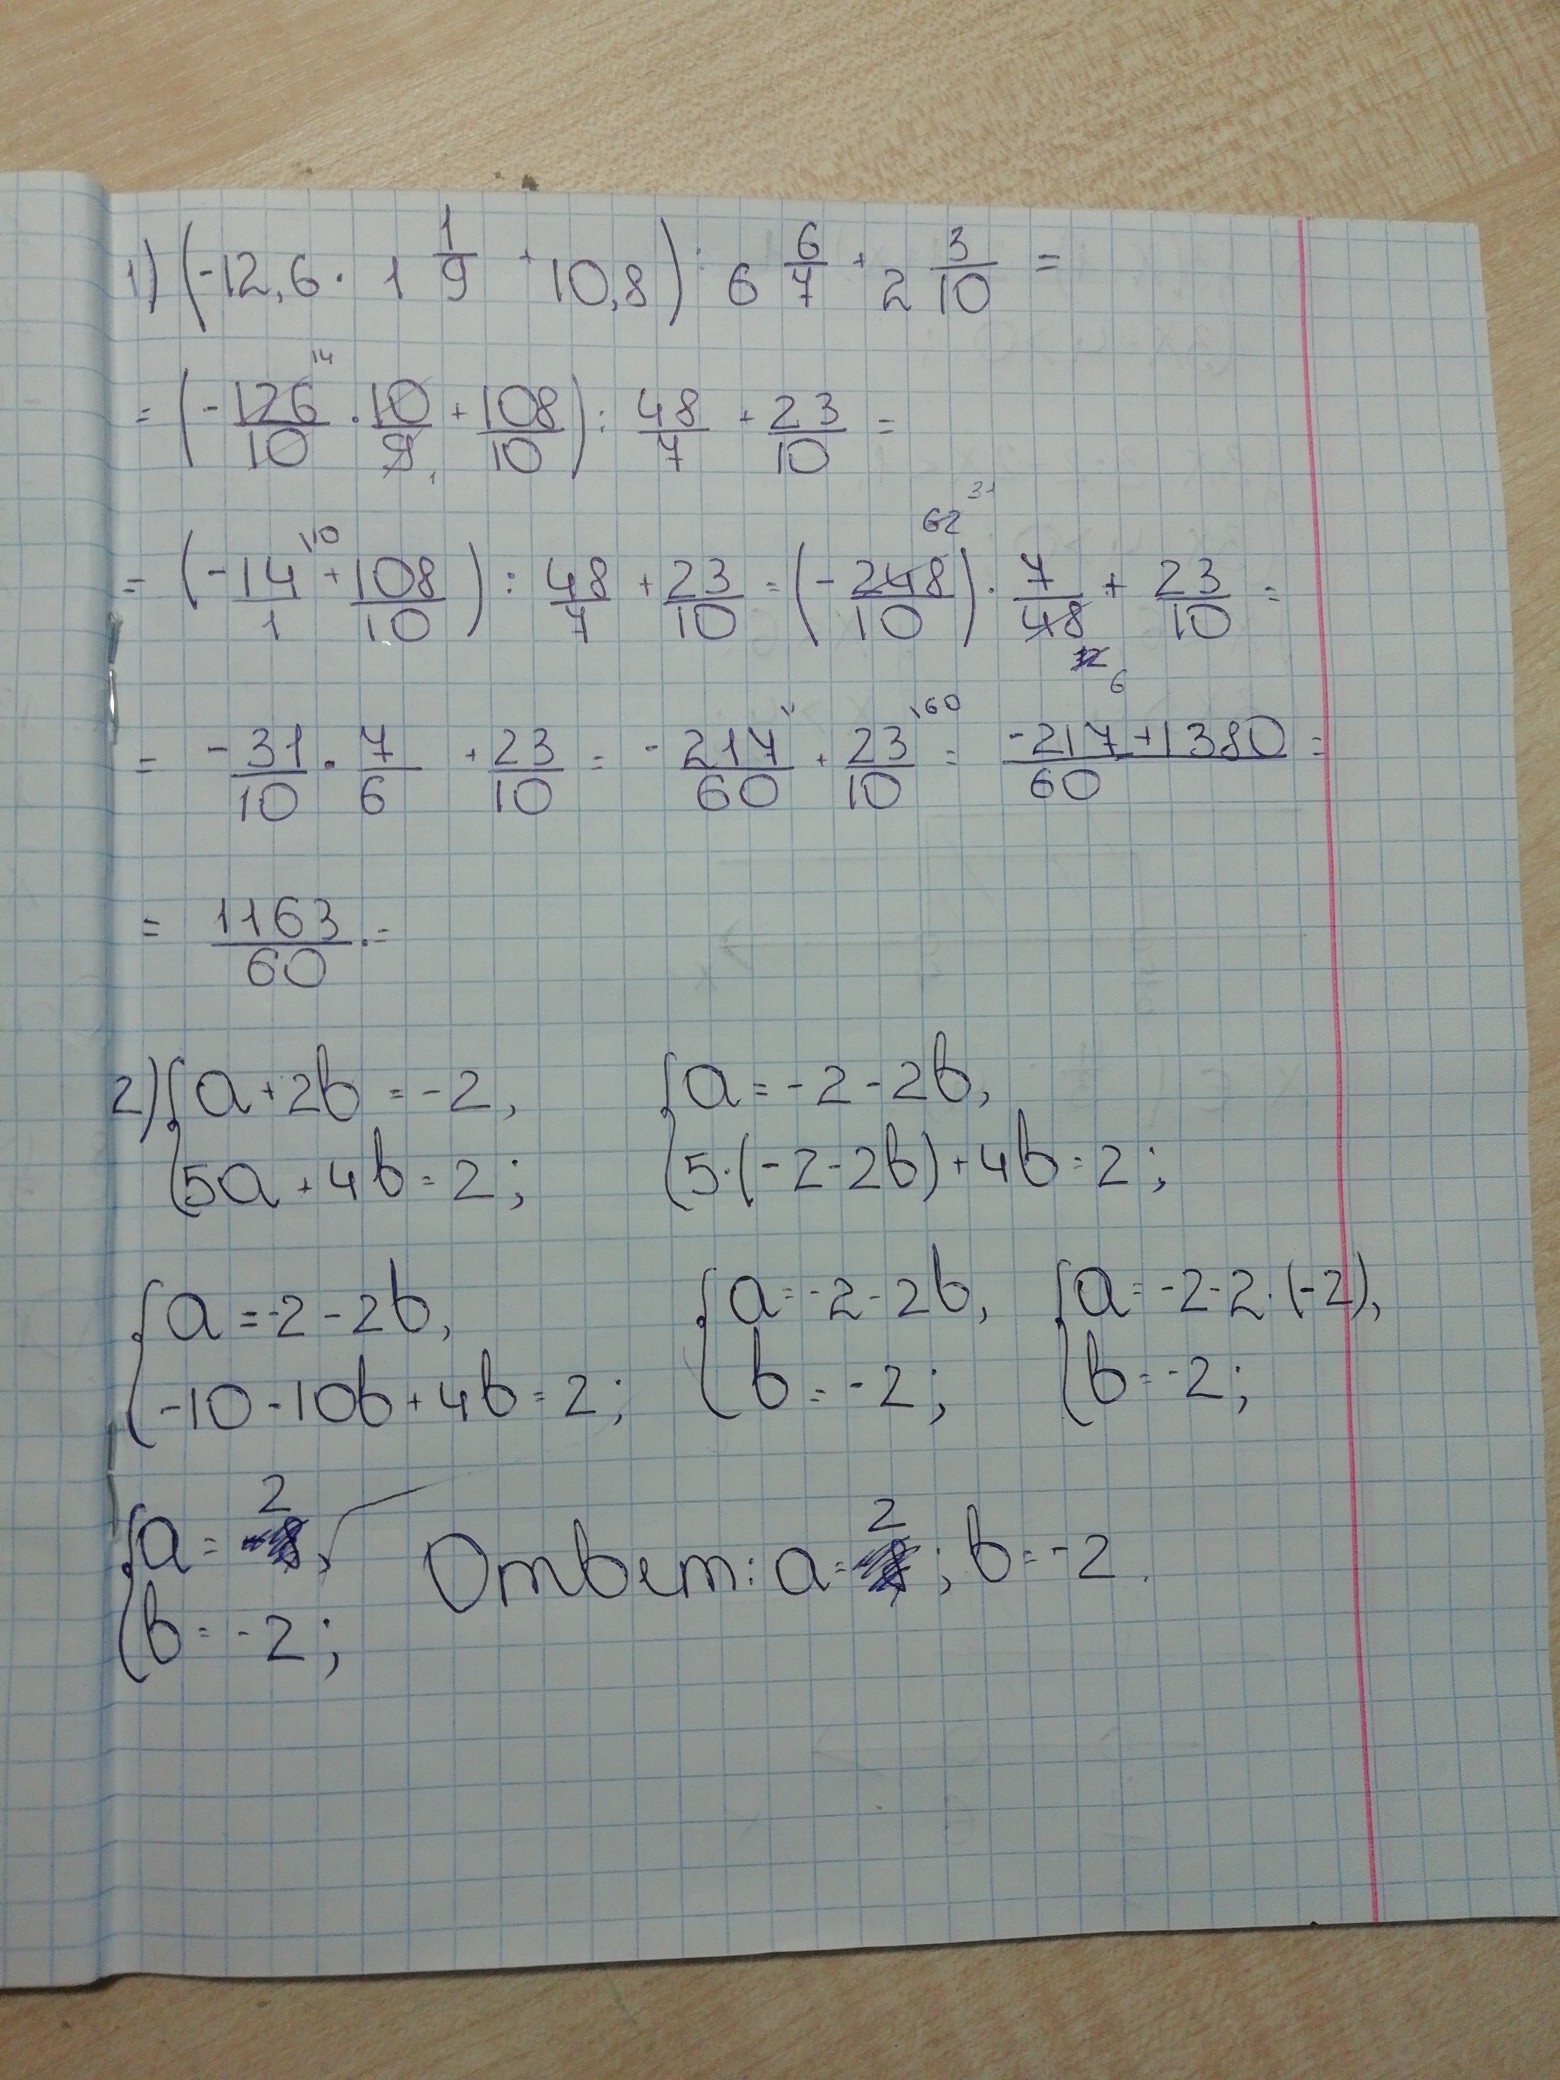 1) (-12,6 · 1 1/9 + 10,8) : 6 6/7 + 2 3/10 =
= (-126/10 · 10/9 + 108/10) : 48/7 + 23/10 =
= (-14/1 + 108/10) : 48/7 + 23/10 = (-248/10) · 7/48 + 23/10 =
= -31/10 · 7/6 + 23/10 = -217/60 + 23/10 = -217+1380/60 =
= 1163/60 . =
2) { a+2b = -2, 5a + 4b = 2; { a = -2 - 2b, 5·(-2-2b)+4b = 2;
{ a = -2 - 2b, -10 -10b + 4b = 2; { a = -2 - 2b, b = -2; { a = -2 - 2·(-2), b = -2;
{ a = 2, b = -2; Ответ: a = 2; b = -2.